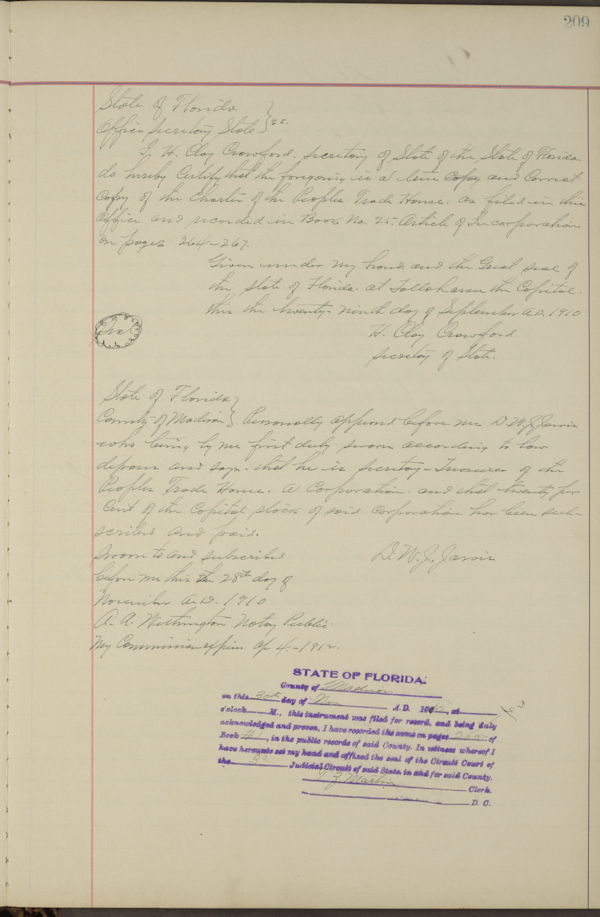 209
State of Florida }
Office Secretary State } ss.
I, H. Clay Crawford, Secretary of State of the State of Florida
do hereby Certify that the foregoing is a true Copy and Correct
Copy of the Charter of the Peoples Trade House, as filed in this
Office and recorded in Book No. 25. Article of Incorporation
on pages 264-267.
Given under my hand and the Great seal of
the State of Florida at Tallahassee the Capital.
this the twenty-ninth day of September A.D. 1910
H. Clay Crawford
Secretary of State.
Seal
State of Florida }
County of Madison } Personally appeared before me D.W.J. Jarvis
who being by me first duly sworn according to law
deposes and says. that he is Secretary-Treasurer of the
Peoples Trade House. A Corporation. and that twenty per
Cent of the Capital stock of said Corporation has been sub-
scribed and paid.
Sworn to and subscribed D. W. J. Jarvis
before me this the 28th day of
November A.D. 1910
A. A. Withington Notary Public
My Commission expires Ap 4.-1912.
STATE OF FLORIDA.
County of Madison
on this 30th day of Nov A. D. 19 , at
o'clock M., this instrument was filed for record, and being duly
acknowledged and proven, I have recorded the same on pages of
Book #1, in the public records of said County. In witness whereof I
have hereunto set my hand and affixed the seal of the Circuit Court of
the Judicial Circuit of said State, in and for said County.
Martin Clerk.
D. C.